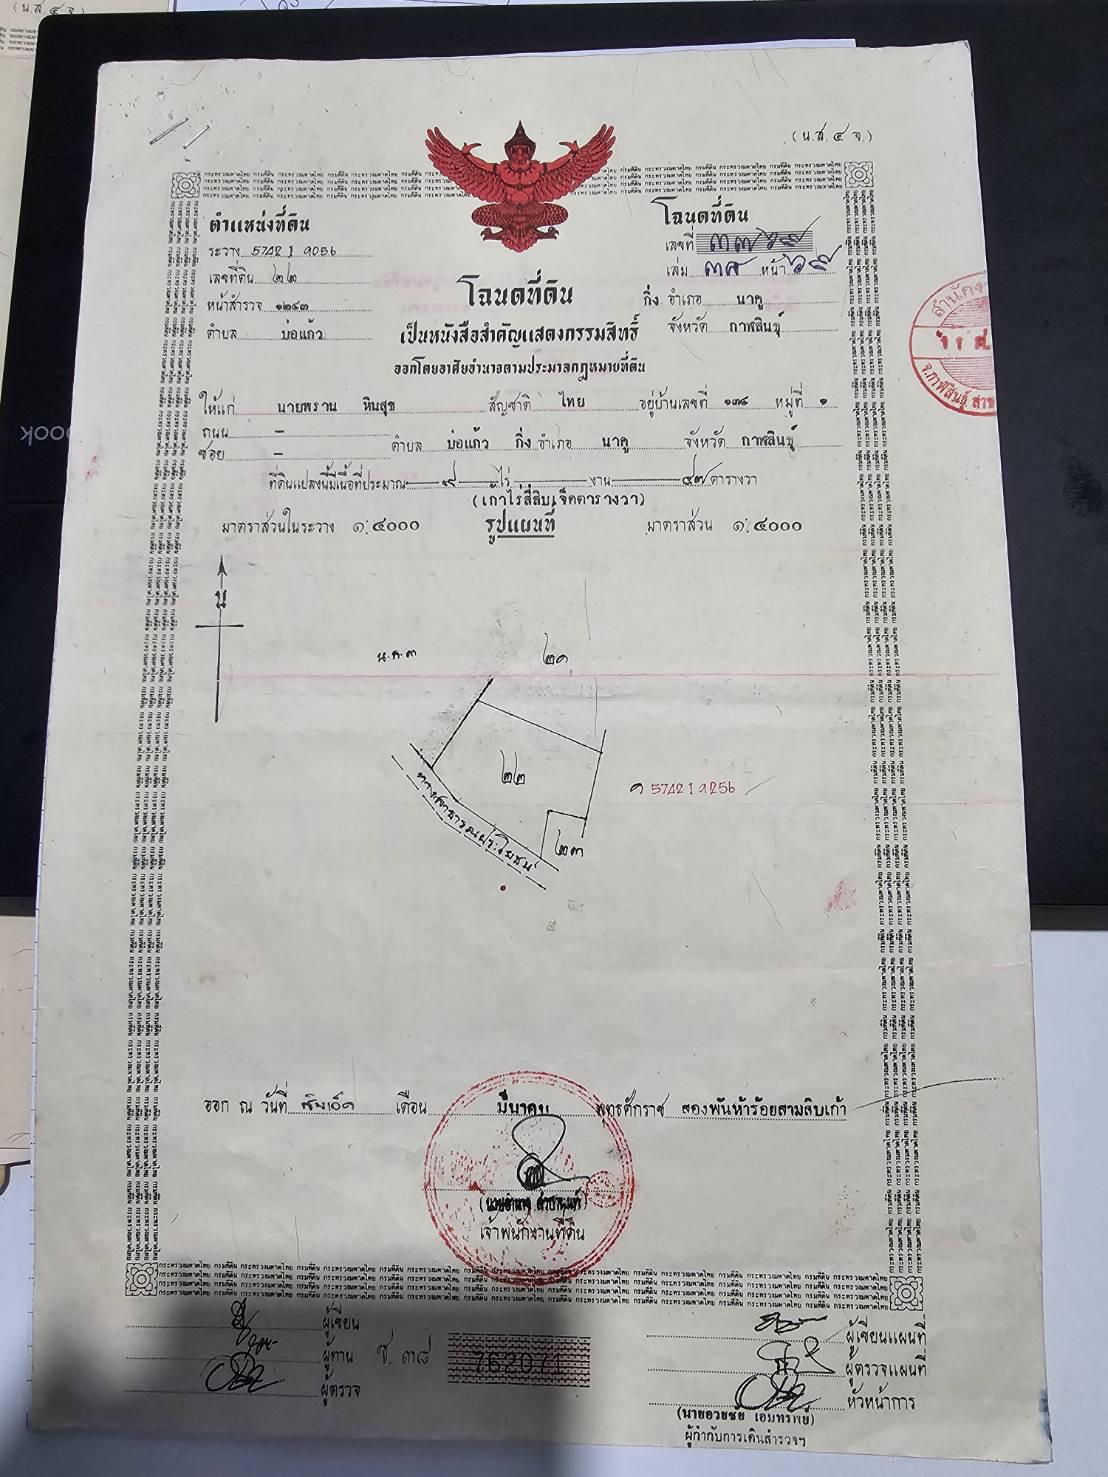 (น.ส. ๔ จ.)
ตำแหน่งที่ดิน
ระวาง 5742 I 9056
เลขที่ดิน ๒๒
หน้าสำรวจ ๑๒๔๓
ตำบล บ่อแก้ว
โฉนดที่ดิน
เลขที่
เล่ม ๓๘ หน้า ๖๘
กิ่ง อำเภอ นาคู
จังหวัด กาฬสินธุ์
โฉนดที่ดิน
เป็นหนังสือสำคัญแสดงกรรมสิทธิ์
ออกโดยอาศัยอำนาจตามประมวลกฎหมายที่ดิน
ให้แก่ นายพราน หินสุข สัญชาติ ไทย อยู่บ้านเลขที่ ๑๓๔ หมู่ที่ ๑
ถนน –
ซอย – ตำบล บ่อแก้ว กิ่ง อำเภอ นาคู จังหวัด กาฬสินธุ์
ที่ดินแปลงนี้มีเนื้อที่ประมาณ ๙ ไร่ งาน ๔๗ ตารางวา
(เก้าไร่สี่สิบเจ็ดตารางวา)
มาตราส่วนในระวาง ๑:๔๐๐๐ รูปแผนที่ มาตราส่วน ๑:๔๐๐๐
น
น.ค.๓
๒๑
๒๒
5742 I 9256
๒๓
ทางสาธารณประโยชน์
ออก ณ วันที่ สิบเอ็ด เดือน มีนาคม พุทธศักราช สองพันห้าร้อยสามสิบเก้า
เจ้าพนักงานที่ดิน
ผู้เขียน
ผู้ทาน
ผู้ตรวจ
ช. ๓๘
762071
ผู้เขียนแผนที่
ผู้ตรวจแผนที่
หัวหน้าการ
(นายอวยชัย เอมทรัพย์)
ผู้กำกับการเดินสำรวจฯ